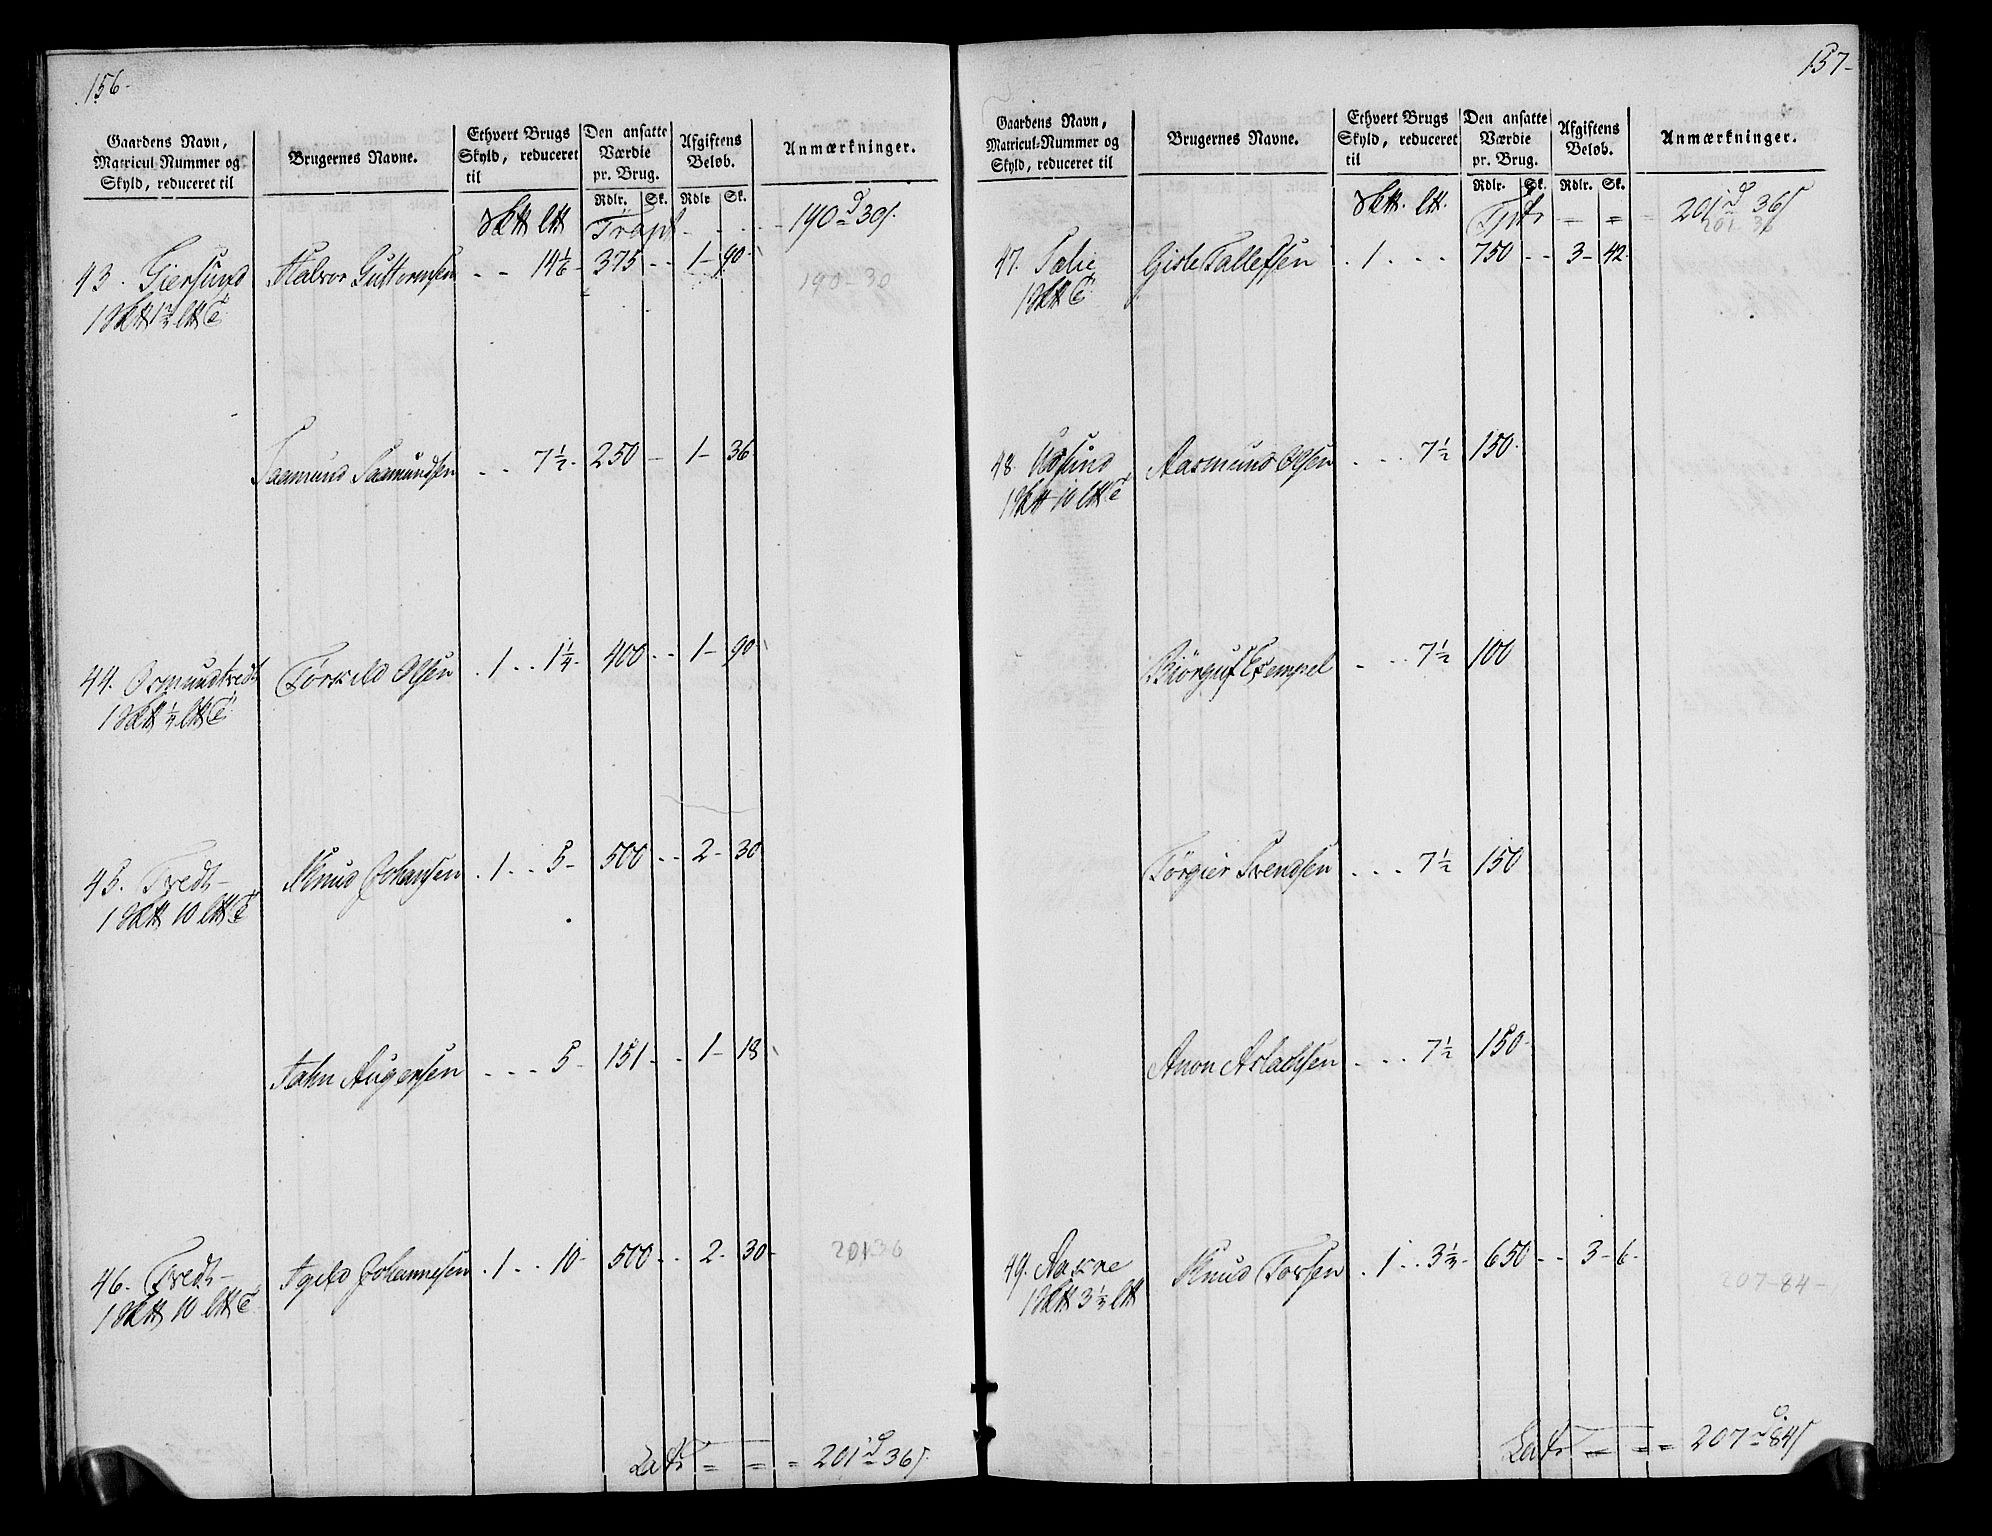 156-
Gaardens Navn, Matricul-Nummer og Skyld, reduceret til
Brugernes Navne.
Ethvert Brugs Skyld, reduceret til
Den ansatte Værdie pr. Brug.
Afgiftens Beløb.
Anmærkninger.
Rdlr. Sk. Rdlr Sk.
Trspt - - - 190 d 30 s
43. Giersund Halvor Guttormsen - - 14 1/6 - 375 - - 1 - 90 -
190-30
Saamund Saamundsen - - 7 1/2 - 250 - 1 - 36
44. Osmundtvedt Törkild Olsen . 1 . . 1 1/4 - 400 - - 1 - 90
45. Tvedt - Knud Johansen . 1 . . 5 - 500 - - 2 - 30
Jahn Augensen - - - 5 - 151 - - 1 - 18
46. Tvedt - Johannesen . 1 . . 10 - 500 - - 2 - 30 -
201.36
Lats = = = 201 d 36 s
157-
Gaardens Navn, Matricul-Nummer og Skyld, reduceret til
Brugernes Navne.
Ethvert Brugs Skyld, reduceret til
Den ansatte Værdie pr. Brug.
Afgiftens Beløb.
Anmærkninger.
Rdlr. Sk. Rdlr. Sk.
Tspt - = = 201 d 36 s
201 36
47. Gisle Tallefsen . 1 . . . 750 - - 3 - 42 -
48. Udsund Aasmund Olsen . . . 7 1/2 150 -
Biörguf - . . 7 1/2 100
Törgier Svendsen . . . 7 1/2 150
Anon Aslachsen - . . 7 1/2 150 -
49. Knud Torsen . 1 . . 3 1/3 - 650 - - 3 - 6 -
207-84-
Lats = = = 207 d 84 s